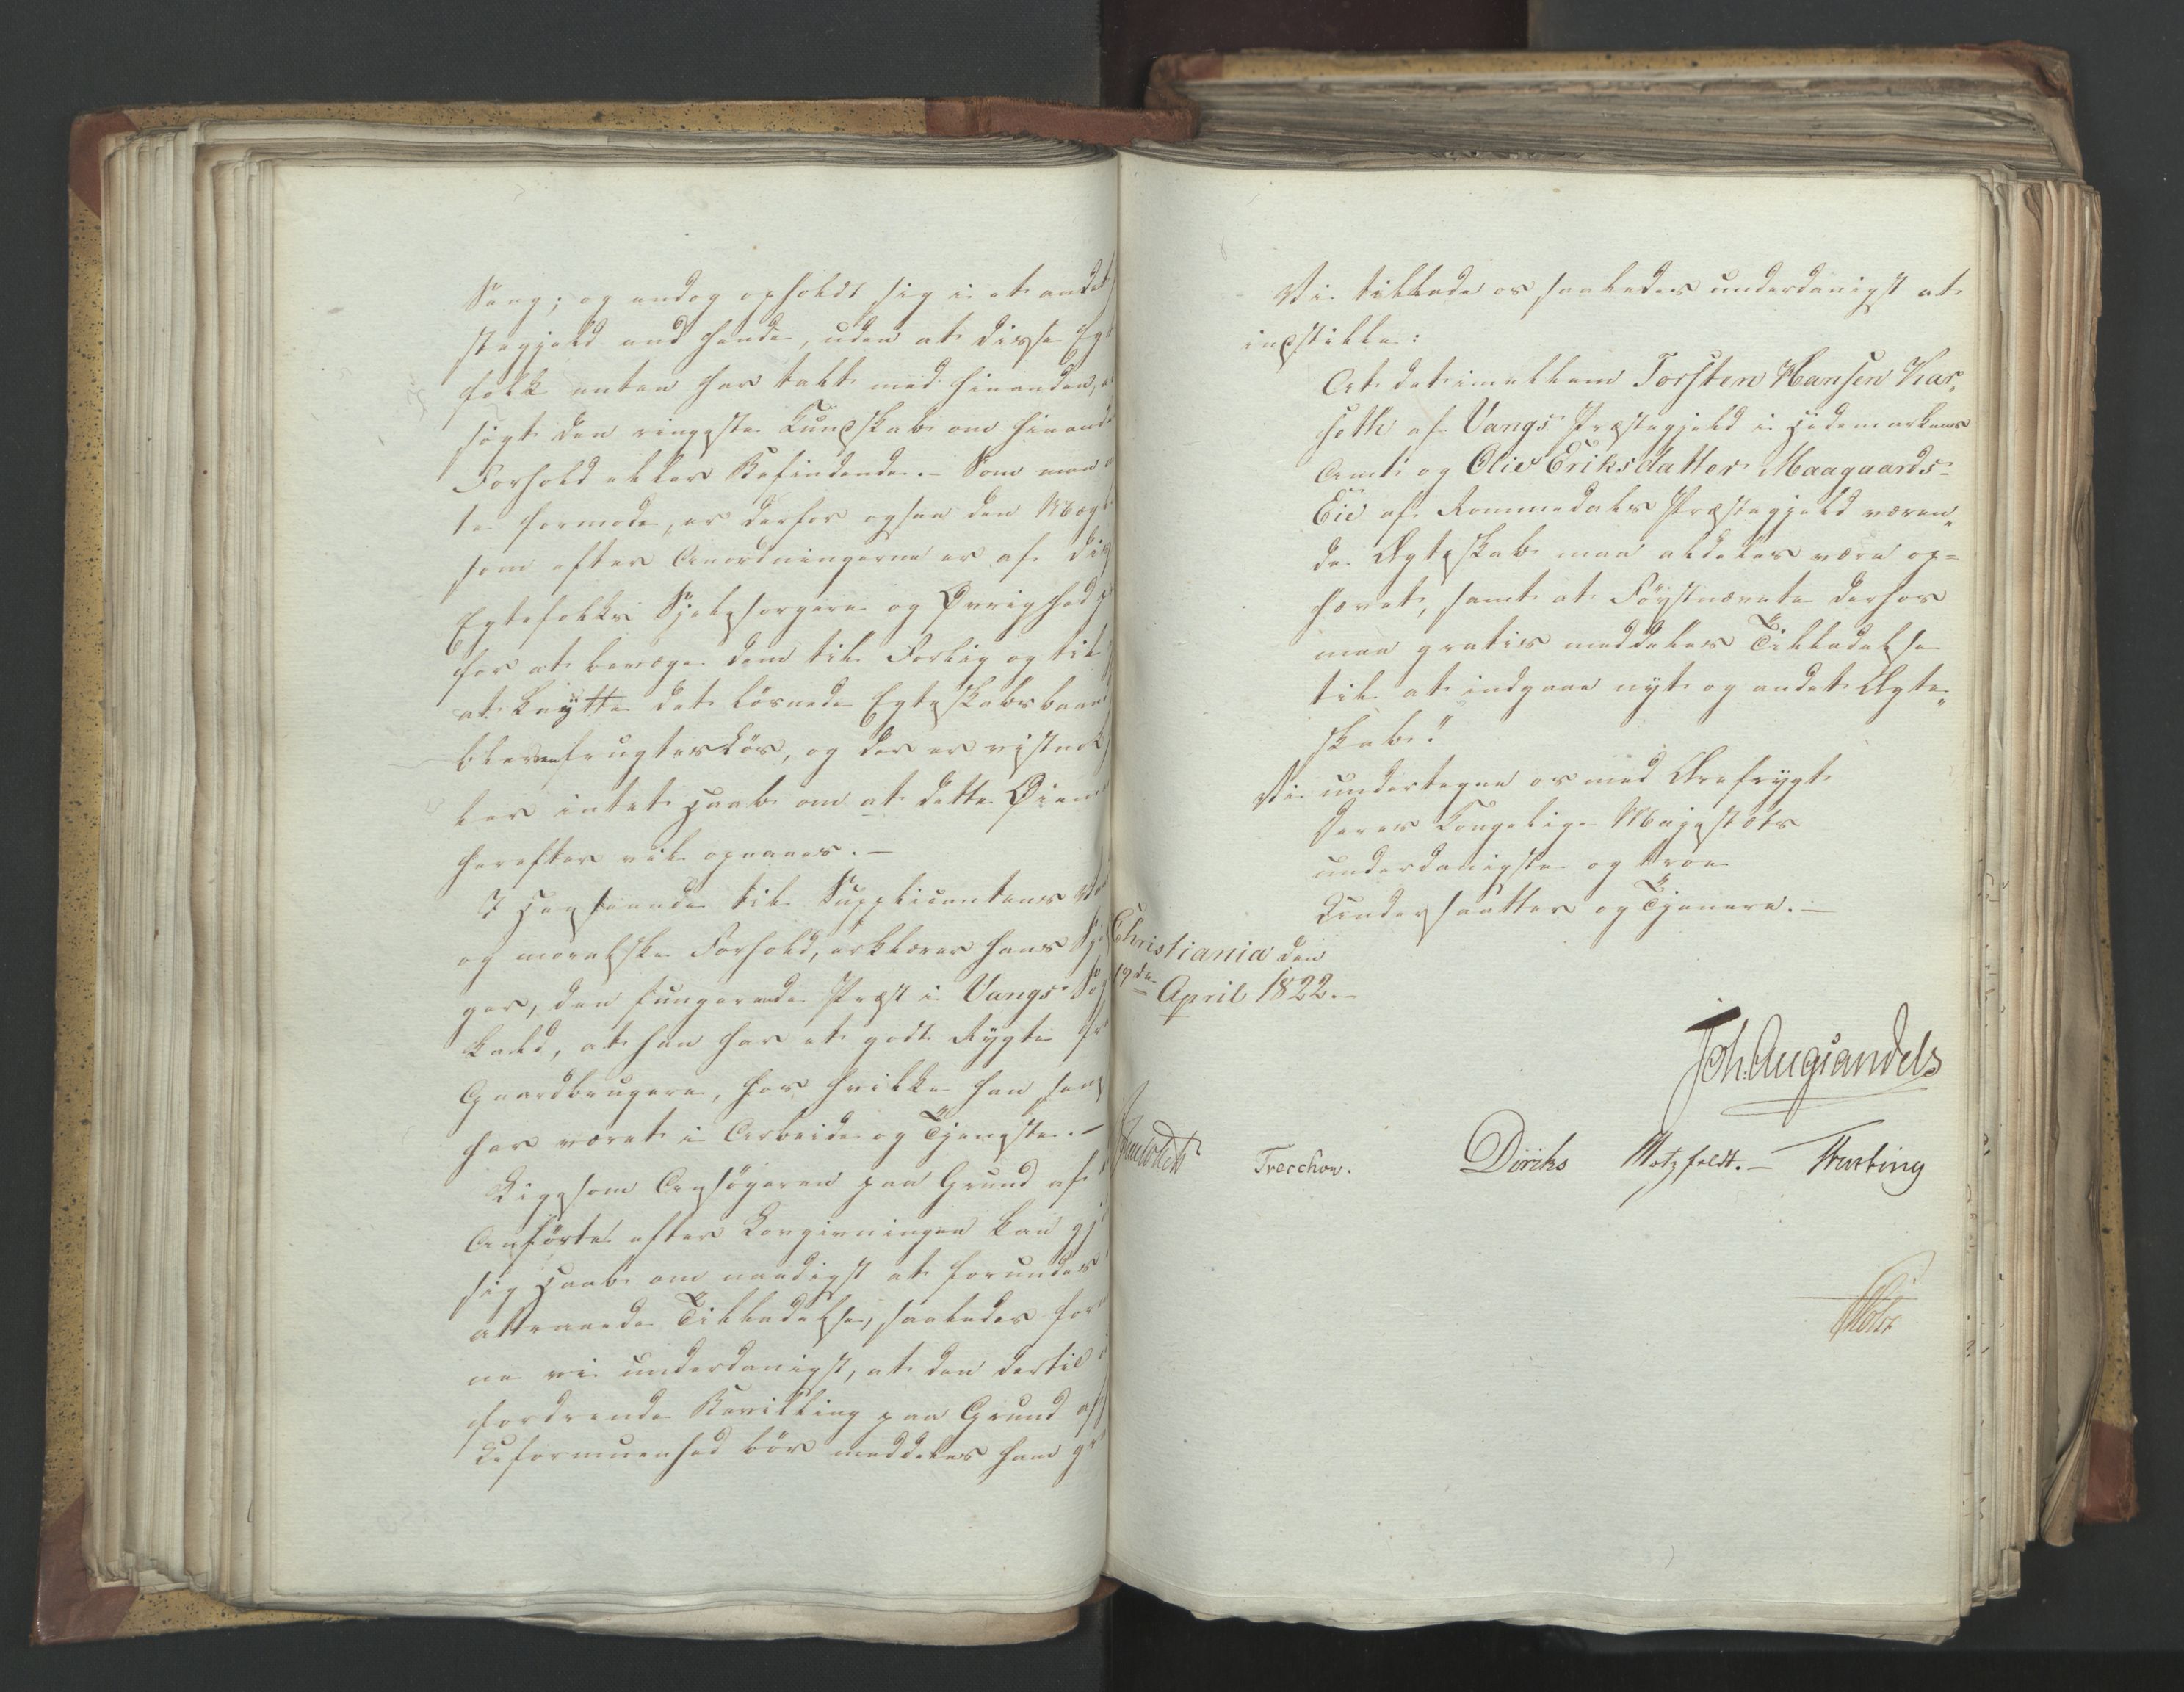 Seng; og endog opholdt sig i et andet
stegjeld end hende, uden at disse Egt
folk enten har talt med hinanden,
søgt den ringeste Kundskab om hinand
Forhold eller Befindende. – Som man
te formode, er derfor ogsaa den Mægl
som efter Anordningerne er af dis
Egtefolks Sjelesørgere og Øvrighed
for at bevæge dem til Forlig og til
at knytte det løsnede Egteskabsbaand
bleven frugtesløs, og der er vistnok
ler intet Haab om at dette Øiem
herefter vil opnaaes. –
I Henseende til Supplicantens
og moralske Forhold, erklærer hans Sjel
ger, den fungerende Præst i Vangs Sog
kald, at han har et godt Rygte
Gaardbrugere, hos hvilke han
har været i Arbeide og Tjeneste. –
Ligesom Ansøgeren paa Grund af
Anførte efter Lovgivningen kan gj
sig Haab om naadigst at forundes
attraaede Tilladelse, saaledes for
ne vi underdanigst, at den dertil
fordrende Bevilling paa Grund af
Uformuenhed bør meddeles ham gr
Vi tillade os saaledes underdanigst at
indstille:
At det imellem Torsten Hansen Kar„
seth af Vangs Præstegjeld i Hedemarkens
Amt og Olive Eriksdatter Maagaards-
Eie af Rommedals Præstegjeld væren„
de Ægteskab maa aldeles være op=
hævet, samt at Førstnævnte derhos
maa gratis meddeles Tilladelse
til at indgaae nyt og andet Ægte„
skab."
Vi undertegne os med Ærefrygt
Deres Kongelige Majestæts
underdanigste og troe
Undersaatter og Tjenere. –
Christiania den
19de April 1822. –
Joh. Aug. Sandels
Treschow. Diriks Motzfeldt. – Krebting
Holst